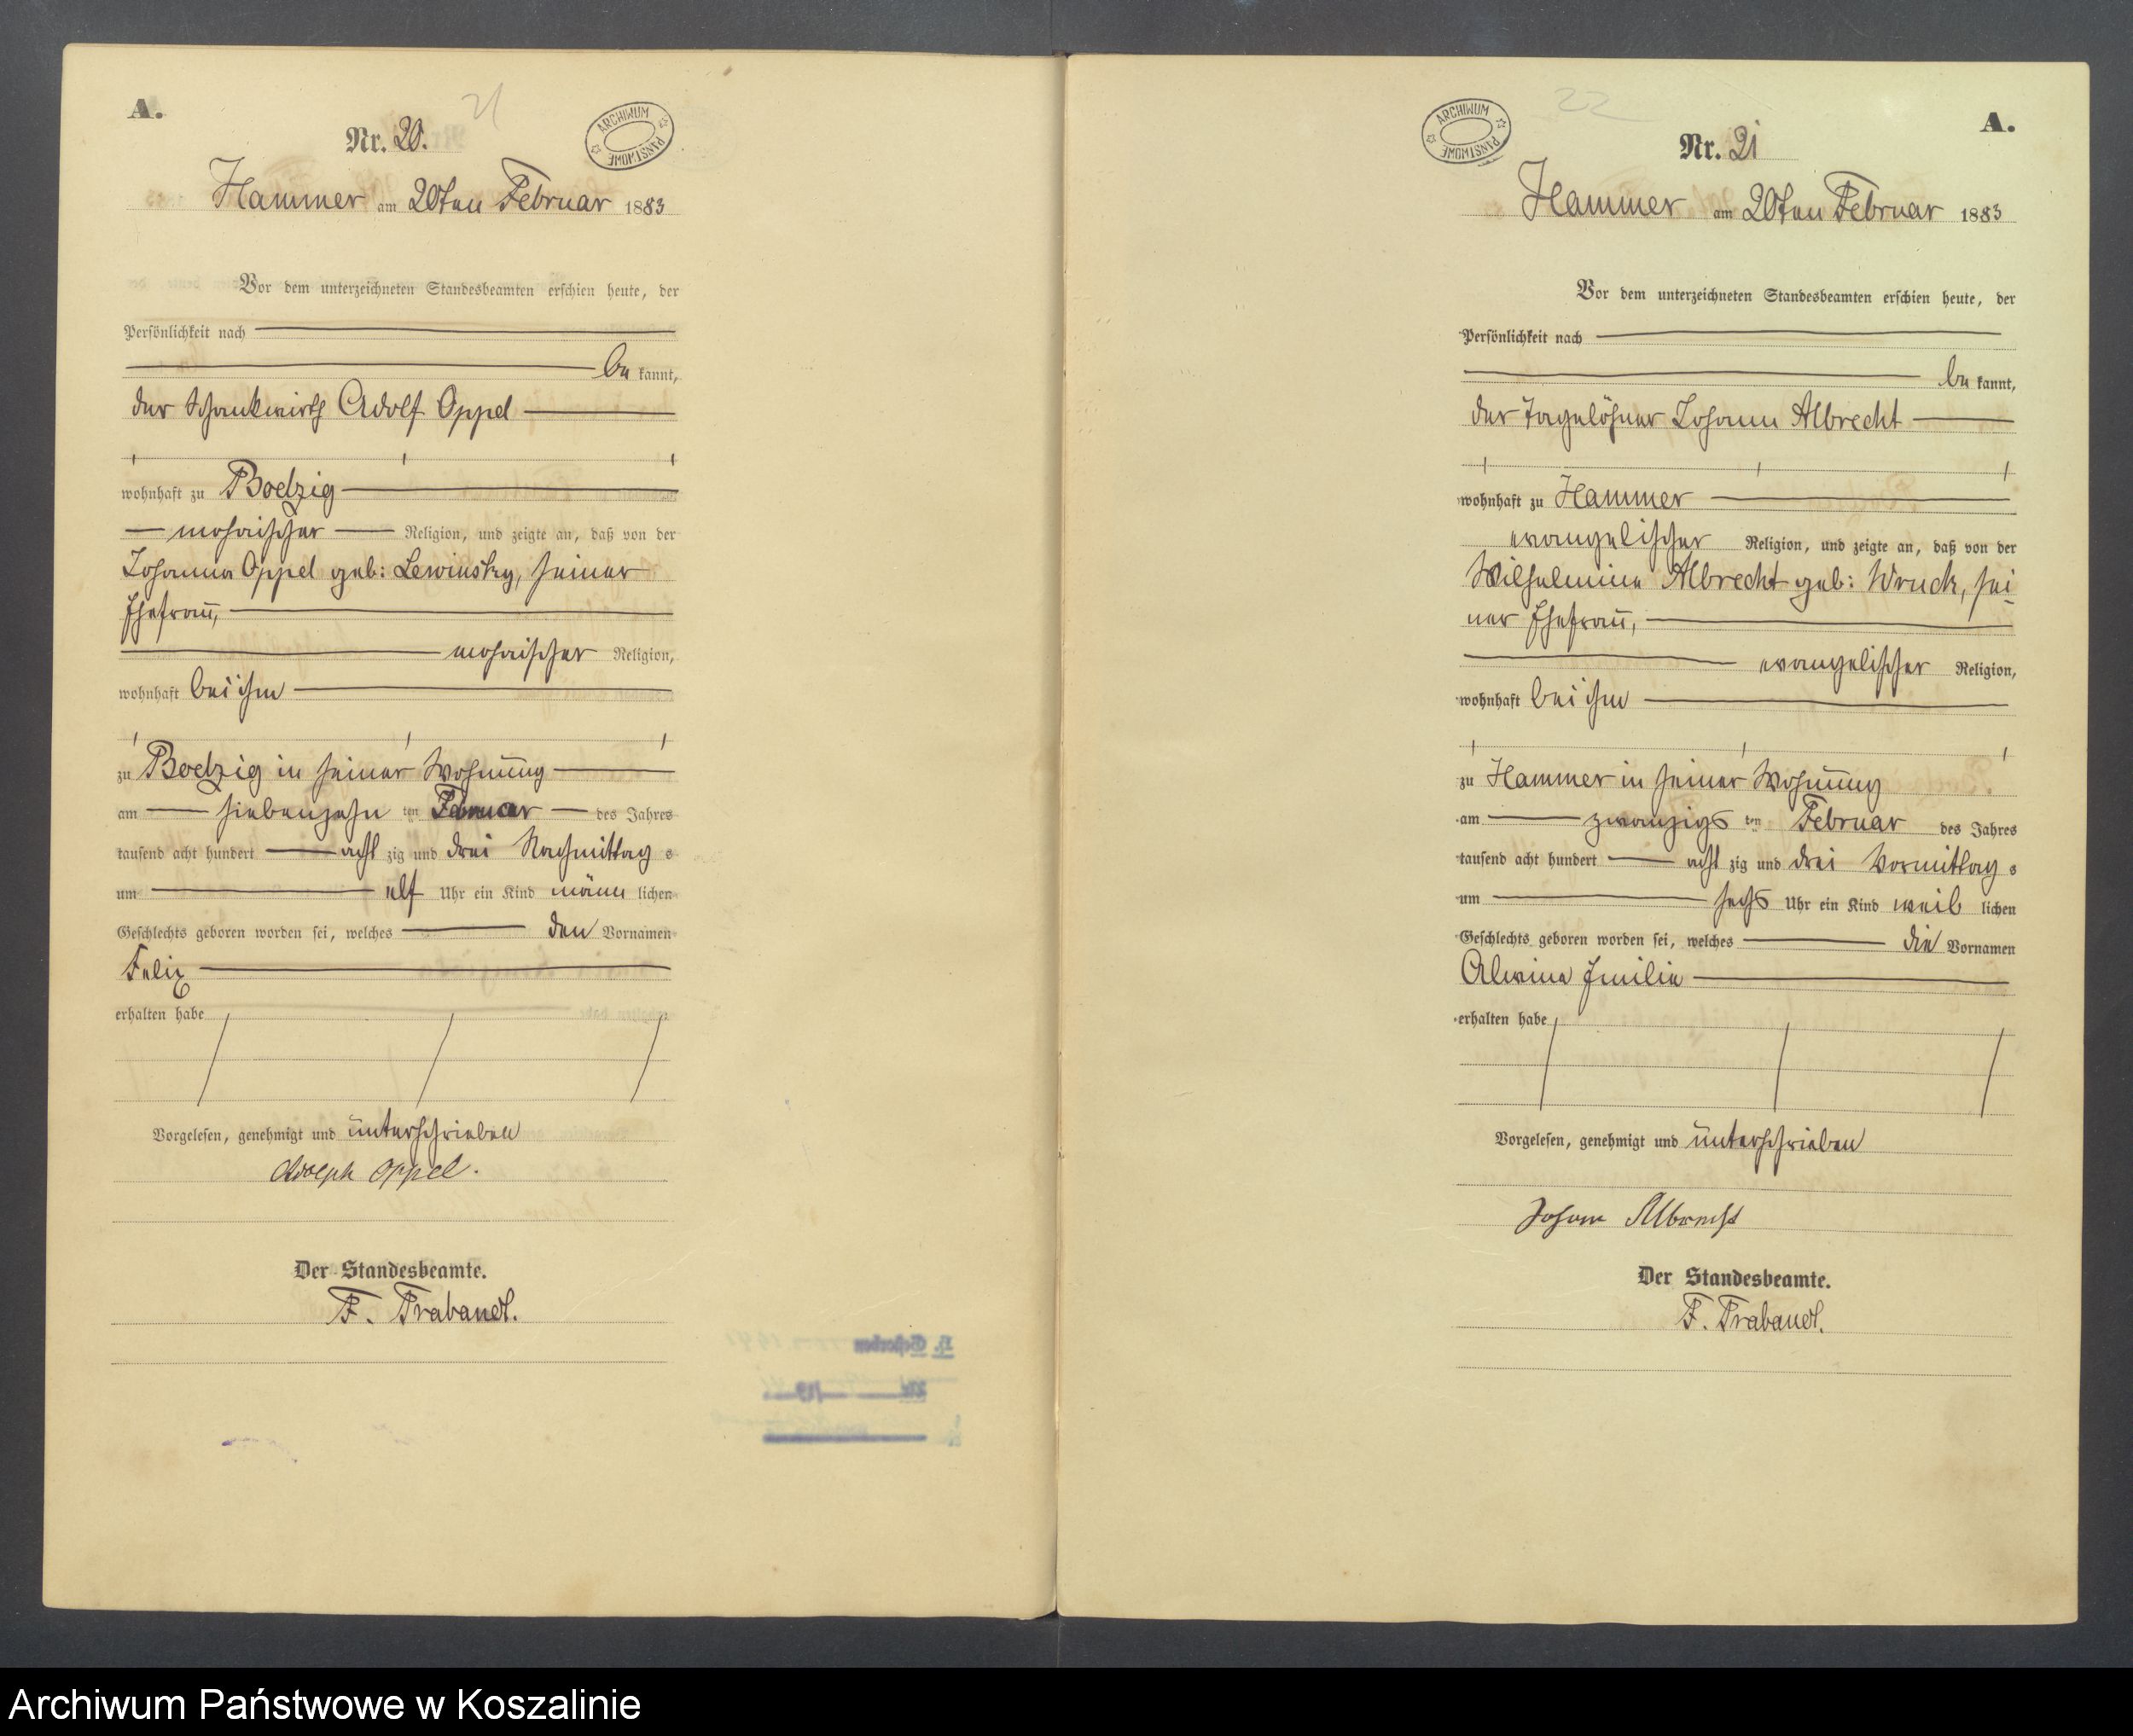 A.
21
Nr. 20.
ARCHIWUM PAŃSTWOWE
Hammer am 20ten Februar 1883
Vor dem unterzeichneten Standesbeamten erschien heute, der
Persönlichkeit nach
be kannt,
der Schankwirth Adolf Oppel
wohnhaft zu Boelzig
mosaischer Religion, und zeigte an, daß von der
Johanna Oppel geb: Lewinsky, seiner
Ehefrau,
mosaischer Religion,
wohnhaft bei ihm
zu Boelzig in seiner Wohnung
am siebenzehn ten Februar des Jahres
tausend acht hundert acht zig und drei Nachmittag s
um elf Uhr ein Kind männ lichen
Geschlechts geboren worden sei, welches den Vornamen
Felix
erhalten habe
Vorgelesen, genehmigt und unterschrieben
Adolph Oppel.
Der Standesbeamte.
F. Trabandt.
22
A.
Nr. 21
ARCHIWUM PAŃSTWOWE
Hammer am 20ten Februar 1883
Vor dem unterzeichneten Standesbeamten erschien heute, der
Persönlichkeit nach
be kannt,
der Tagelöhner Johann Albrecht
wohnhaft zu Hammer
evangelischer Religion, und zeigte an, daß von der
Wilhelmine Albrecht geb: Wruck, sei
ner Ehefrau,
evangelischer Religion,
wohnhaft bei ihm
zu Hammer in seiner Wohnung
am zwanzigs ten Februar des Jahres
tausend acht hundert acht zig und drei Vormittag s
um sechs Uhr ein Kind weib lichen
Geschlechts geboren worden sei, welches die Vornamen
Alwine Emilie
erhalten habe
Vorgelesen, genehmigt und unterschrieben
Johann Albrecht
Der Standesbeamte.
F. Trabandt.
Archiwum Państwowe w Koszalinie